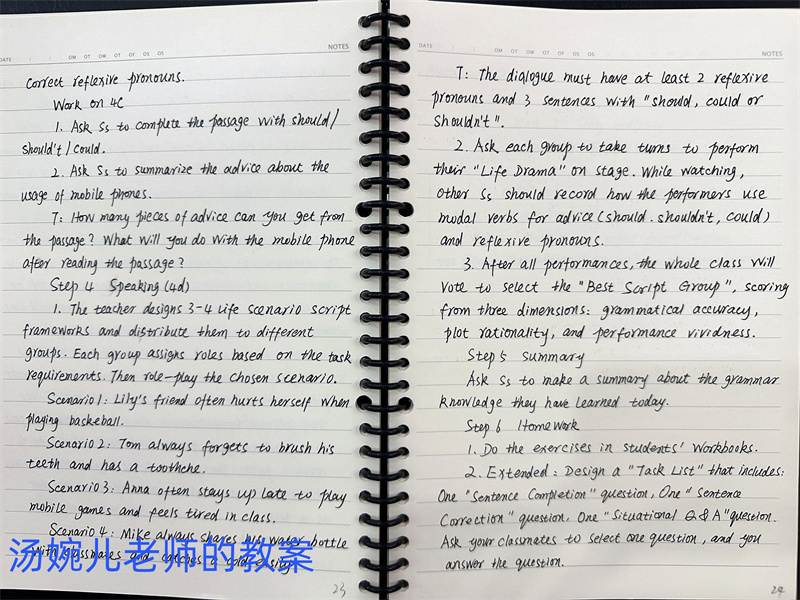 DATE OM OT OW OT OF OS OS NOTES
Correct reflexive pronouns.
Work on 4C
1. Ask Ss to complete the passage with should/
should't/could.
2. Ask Ss to summarize the advice about the
usage of mobile phones.
T: How many pieces of advice can you get from
the passage? What will you do with the mobile phone
after reading the passage?
Step 4 Speaking (4d)
1. The teacher designs 3-4 life scenario script
frameworks and distribute them to different
groups. Each group assigns roles based on the task
requirements. Then role-play the chosen scenario.
Scenario 1: Lily's friend often hurts herself when
playing baskeball.
Scenario 2: Tom always forgets to brush his
teeth and has a toothche.
Scenario 3: Anna often stays up late to play
mobile games and feels tired in class.
Scenario 4: Mike always shares his water bottle
with classmates and catches a cold easily.
汤婉儿老师的教案
23
DATE OM OT OW OT OF OS OS NOTES
T: The dialogue must have at least 2 reflexive
pronouns and 3 sentences with "should, could or
shouldn't".
2. Ask each group to take turns to perform
their "Life Drama" on stage. While watching,
other Ss should record how the performers use
modal verbs for advice (should. shouldn't, could)
and reflexive pronouns.
3. After all performances, the whole class will
vote to select the "Best Script Group", scoring
from three dimensions: grammatical accuracy,
plot rationality, and performance vividness.
Step 5 Summary
Ask Ss to make a summary about the grammar
knowledge they have learned today.
Step 6 Homework
1. Do the exercises in students' Workbooks.
2. Extended: Design a "Task List" that includes:
One "Sentence Completion" question, One "Sentence
Correction" question, One "Situational Q & A" question.
Ask your classmates to select one question, and you
answer the question.
24